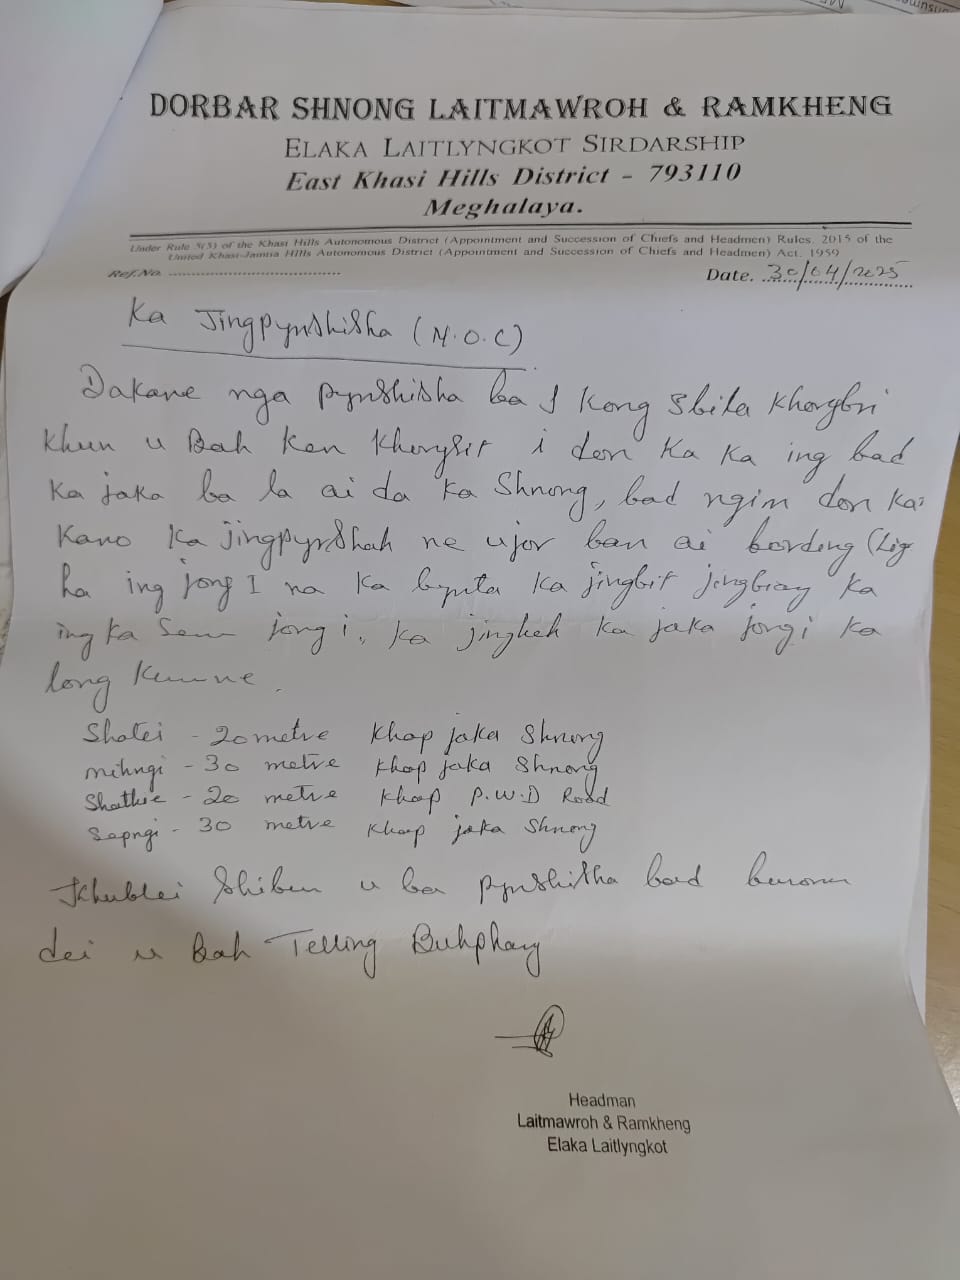 DORBAR SHNONG LAITMAWROH & RAMKHENG
ELAKA LAITLYNGKOT SIRDARSHIP
East Khasi Hills District - 793110
Meghalaya.
Under Rule 5(5) of the Khasi Hills Autonomous District (Appointment and Succession of Chiefs and Headmen) Rules, 2015 of the
United Khasi-Jaintia Hills Autonomous District (Appointment and Succession of Chiefs and Headmen) Act, 1959
Ref.No. ........................................
Date. 30/04/2025
Ka Jingpynshisha (N.O.C)
Dakane nga pynshisha ba I Kong Sbila
khun u Bah Ken i don Ka Ka ing bad
Ka jaka ba la ai da Ka Shnong, bad ngim don Kai
Kano Ka jingpynshah ne ujor ban ai bording
ha ing jong I na Ka bynta Ka jingbit jingbiang Ka
ing Ka Sem jong i, Ka jingheh Ka jaka jong i Ka
long Kumne.
Shatei - 20 metre Khap jaka Shnong
mihngi - 30 metre Khap jaka Shnong
Shathie - 20 metre Khap P.W.D Road
Sepngi - 30 metre Khap jaka Shnong
Khublei Shibun u ba pynshisha bad
dei u Bah Telling Buhphang
Headman
Laitmawroh & Ramkheng
Elaka Laitlyngkot